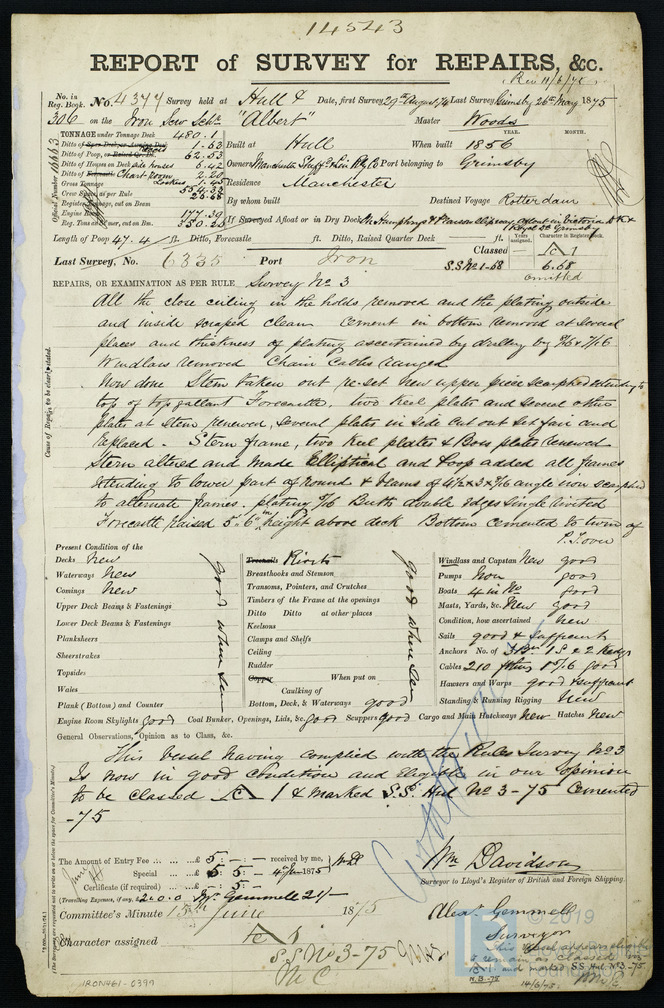 14543
REPORT of SURVEY for REPAIRS, &c.
Rec 11/6/75
No. in Reg. Book. No. 4377 Survey held at Hull & Date, first Survey 29th August 74 Last Survey Grimsby 26th May 1875
306 on the Iron Screw Schr "Albert" Master Woods
TONNAGE under Tonnage Deck 480.1
Ditto of 1.63
Ditto of Poop, or Raised Qrtr Dk 62.53
Ditto of Houses on Deck side houses 5.42
Ditto of Forecastle Chart-room 2.20
Gross Tonnage 554.33
Crew Space, as per Rule
Register Tonnage, cut on Beam
Engine Room 177.39
Reg. Tons as Steamer, cut on Bm. 350.25
Official Number
YEAR. MONTH.
Built at Hull When built 1856
Owners Manchester Sheff & Lin Rly Co Port belonging to Grimsby
Residence Manchester
By whom built Destined Voyage Rotterdam
If Surveyed Afloat or in Dry Dock On Humphrys & Pearson slipway afloat in Victoria Dk &
Royal Dk Grimsby
Length of Poop 47.4 ft. Ditto, Forecastle ft. Ditto, Raised Quarter Deck ft.
Years assigned. Character in Register Book
Classed A 1
Last Survey, No. 6335 Port Iron
S.S No 1-68 6.68
omitted
REPAIRS, OR EXAMINATION AS PER RULE Survey No 3
All the close ceiling in the holds removed and the plating outside
and inside scraped clean cement in bottom removed at several
places and thickness of plating ascertained by drilling by 9/16 & 7/16
Windlass removed Chain Cables ranged
Now done Stem taken out re-set New upper piece scarphed extending to
top of top gallant Forecastle. two keel plates and several other
plates at Stem renewed, several plates in side cut out set fair and
replaced. Stern frame, two Keel plates & Boss plates renewed
Stern altered and made Elliptical and Poop added all frames
extending to lower part of round & beams of 4½ x 3 x 7/16 angle iron scarphed
to alternate frames. plating 7/16 Butts double edges single riveted
Forecastle raised 5 ft 6 in height above deck Bottom cemented to turn of
P.T. over
Cause of Repairs to be clearly stated.
Present Condition of the
Decks New
Waterways New
Comings New
Upper Deck Beams & Fastenings
Lower Deck Beams & Fastenings
Planksheers
Sheerstrakes
Topsides
Wales
Plank (Bottom) and Counter
good where seen
Treenails Rivets
Breasthooks and Stemson
Transoms, Pointers, and Crutches
Timbers of the Frame at the openings
Ditto Ditto at other places
Keelsons
Clamps and Shelfs
Ceiling
Rudder
Copper When put on
Caulking of
Bottom, Deck, & Waterways good
good where seen
Windlass and Capstan New good
Pumps Iron good
Boats 4 in No good
Masts, Yards, &c. New good
Condition, how ascertained New
Sails good & sufficient
Anchors No. of 3 Br 1 S & 2 Kedges
Cables 210 fthms 1 5/16 good
Hawsers and Warps good & sufficient
Standing & Running Rigging New
Engine Room Skylights good Coal Bunker, Openings, Lids, &c. good Scuppers good Cargo and Main Hatchways New Hatches New
General Observations, Opinion as to Class, &c.
This Vessel having complied with the Rules Survey No 3
Is now in good Condition and Eligible in our opinion
to be classed A 1 & Marked S.S. Hul No 3-75 Cemented
-75
The Amount of Entry Fee £ 5 : - : - received by me,
Special £ 5 5 - 1875
Certificate (if required) £ - 5 -
(Travelling Expenses, if any, £ 2.0.0 Mr. Gemmell 21/-
Committee's Minute 15th June 1875
Character assigned A 1
S.S No 3-75
M C
Wm Davidson
Surveyor to Lloyd's Register of British and Foreign Shipping.
Alexr Gemmell
Surveyor
© 2019
This vessel appears eligible
to remain as classed
and marked S.S Hul No 3-75
N.B.-75
14/6/75
IRON461-0397